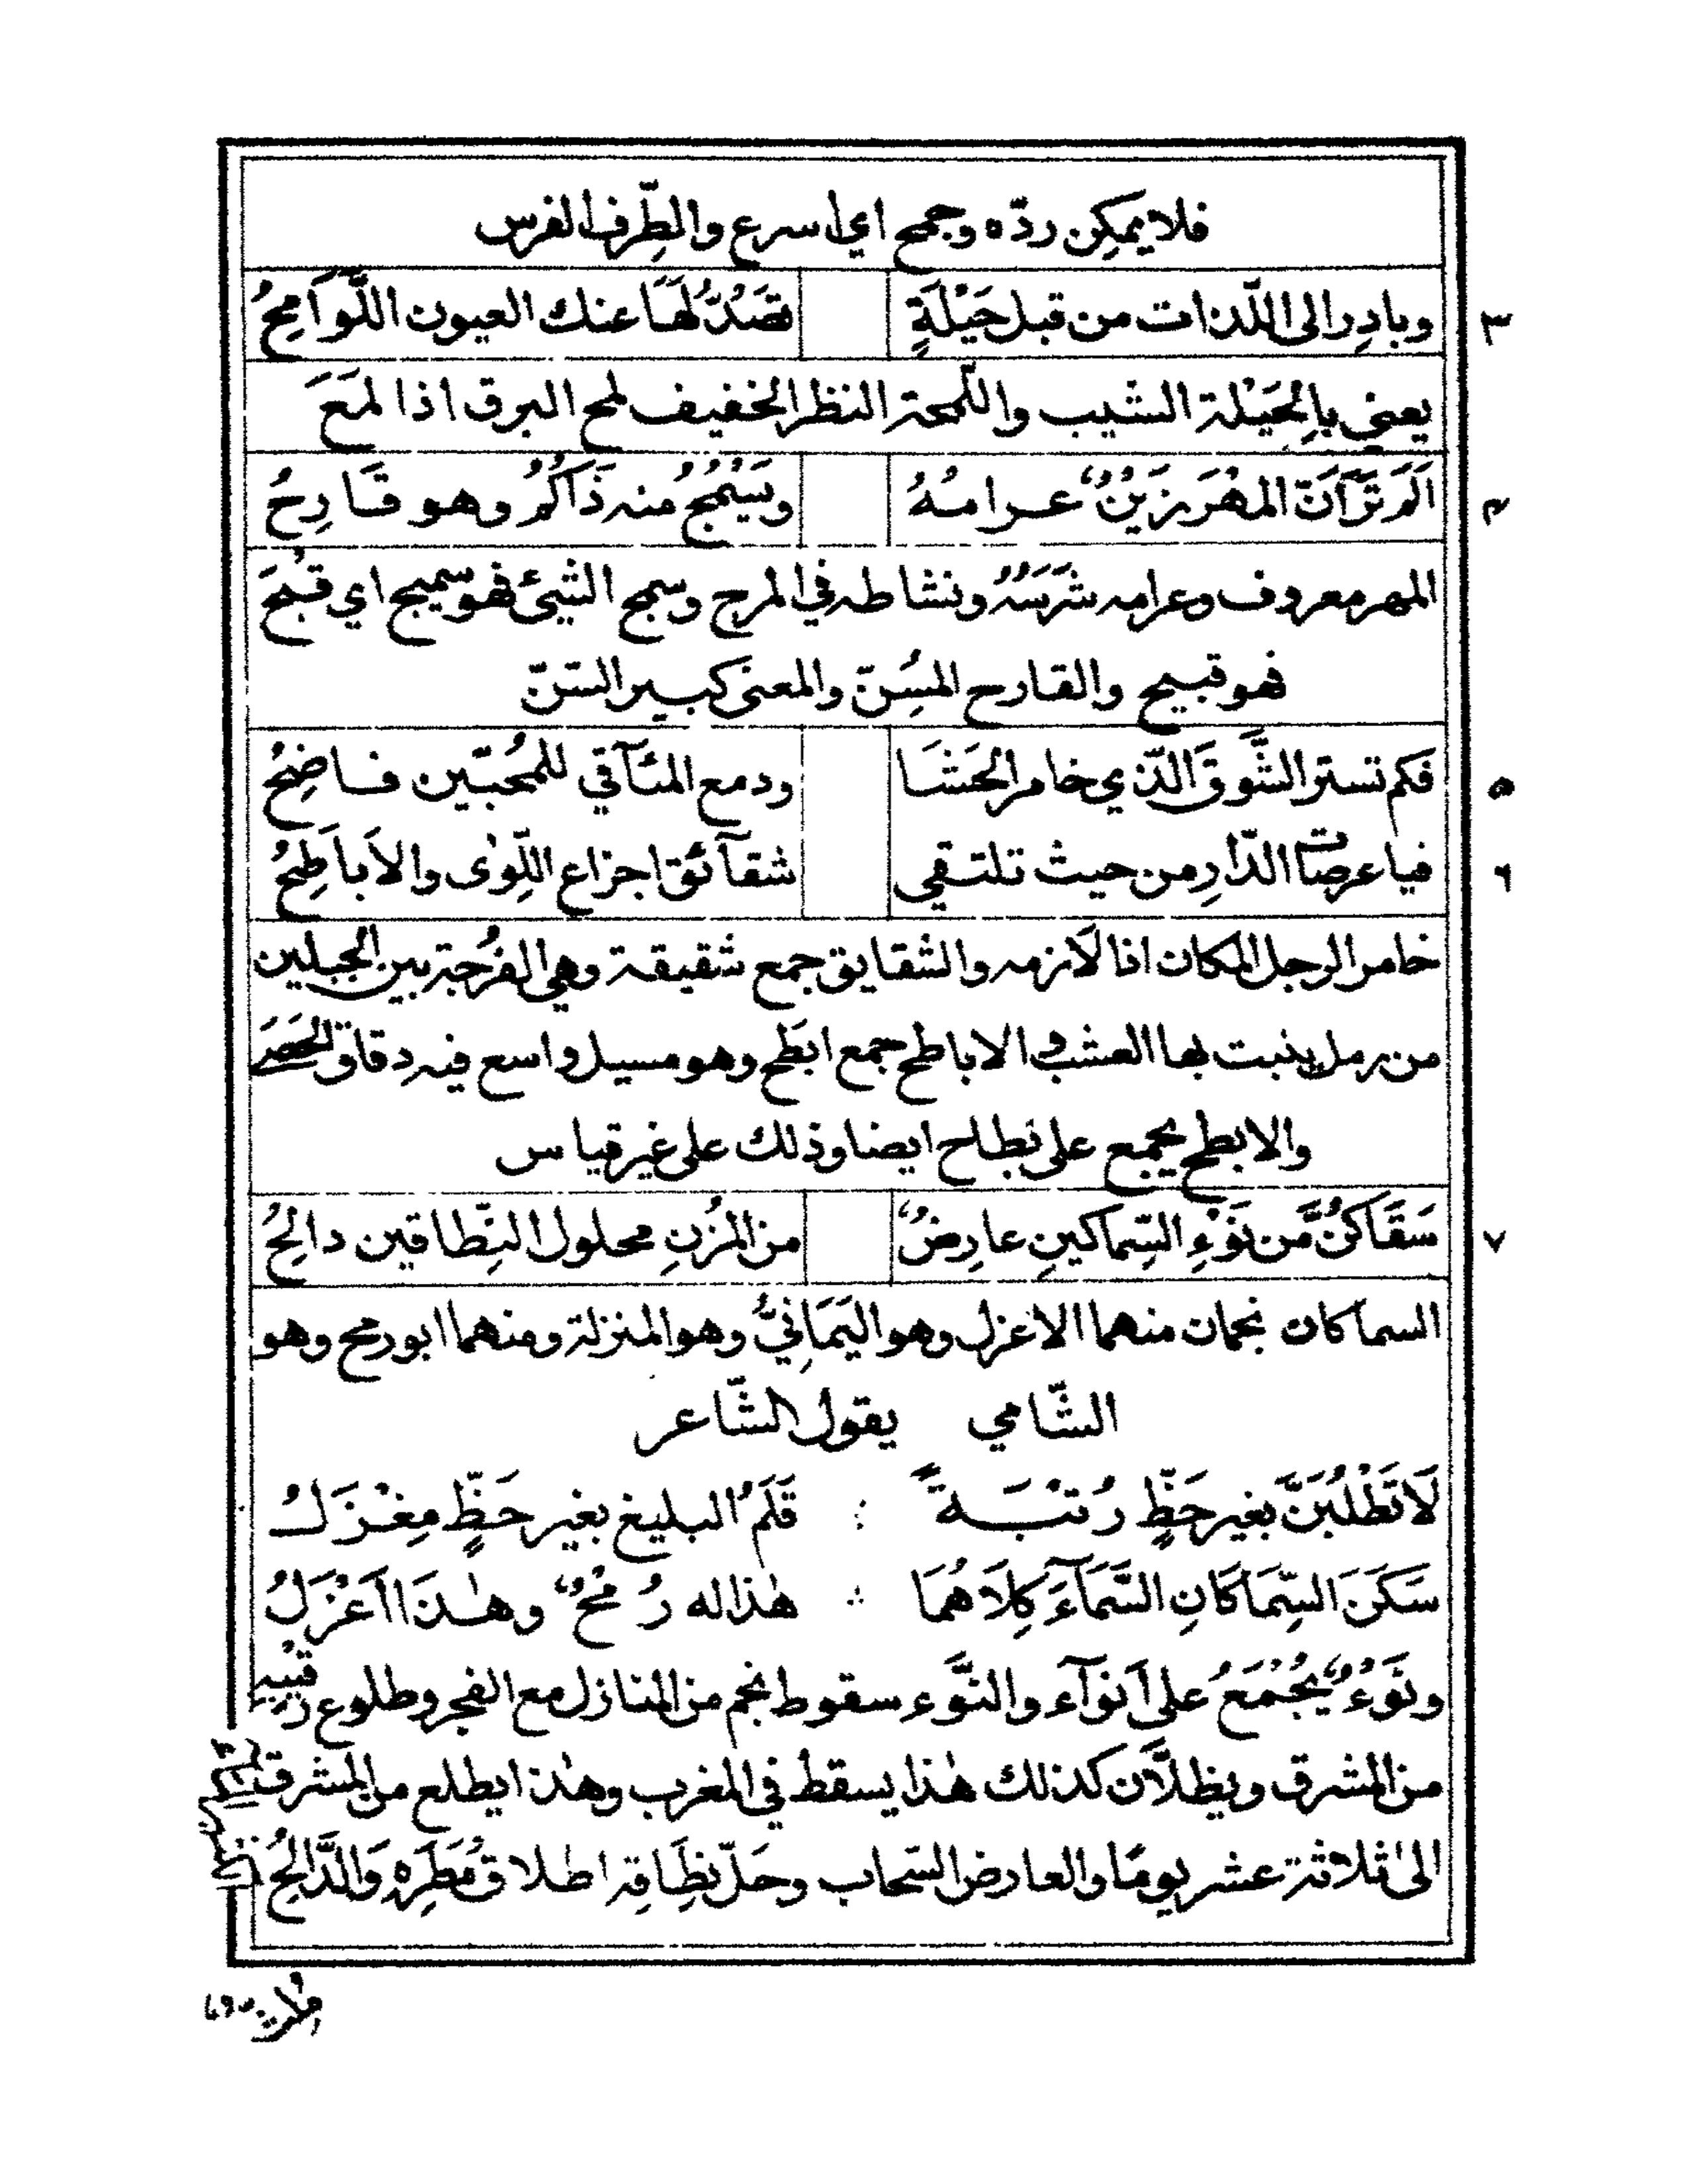 فلا يمكن ردّه وجمح اي اسرع والطِّرف الفرس
٣ وبادِر الى اللّذات من قبل حَيْلَةٍ تصَدُّ لَهَا عنك العيون اللَّوَامِحُ
يعني بالحَيْلة الشيب واللّمحة النظر الخفيف لمح البرق اذا لمَعَ
٤ اَلَم تَرَ اَنّ المهْرَ يَزينُ عرامُهُ ويَسْمُجُ منه ذَاكُمُ وهو قَارِحُ
المهر معروف وعرامه شَرَسَهُ ونشاطه في المرج وسمج الشيئ فهو سميج اي قبُحَ
فهو قبيح والقارح المسِنّ والمعنى كبير السّنّ
٥ فكم تستر الشَّوقَ الّذي خامر الحَشَا ودمع المئآقي للمُحبّين فاضِحُ
٦ فيا عرصات الدّارِ من حيث تلتقي شقآئق اجزاع اللِّوٰى والاَباَطِحُ
خامر الرجل المكان اذا لاَزمه والشقايق جمع شقيقة وهي الفُرجة بين الجبلين
من رمل ينبت بها العشب و الاباطح جمع ابَطح وهو مسيل واسع فيه دقاق الحَصَى
والابطح يجمع على بطاح ايضا وذلك على غير قياس
٧ سَقَاكنَّ مَن نَوْءِ السِّماكينِ عارِضٌ من المُزنِ محلول النِّطاقين دالحُ
السماكان نجمان منهما الاعزل وهو اليَمَانِيُّ وهو المنزلة ومنهما ابو رمح وهو
الشَّامي يقول الشَّاعر
لَا تَطْلُبَنَّ بغير حَظٍّ رُتْبَةً ∴ قَلَمُ البليغ بغير حَظٍّ مِغْزَلُ
سَكَنَ السِّمَاكَانِ السَّمَآءَ كِلَاهُمَا ∴ هٰذا له رُمْحٌ وهٰذَا اَعْزَلُ
ونَوْءٌ يُجْمَعُ على اَنوَآء والنَّوء سقوط نجم من المنازل مع الفجر وطلوع رقيبه
من المشرق ويظلّاَن كذلك هٰذا يسقط في المغرب وهٰذا يطلع من المشرق
الىٰ ثلاثة عشر يومًا والعارض السّحاب وحلّ نِطَاقِه اطلاق مَطَرِهِ وَالدَّالِحُ